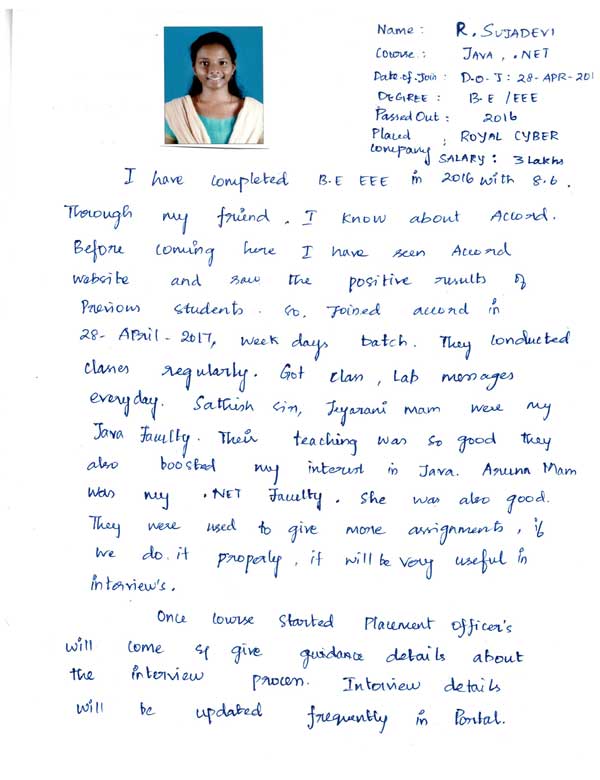 Name : R. SUJADEVI
Course : JAVA, .NET
Date of Join : D.O.J : 28-APR-201
DEGREE : B.E /EEE
Passed Out : 2016
Placed Company : ROYAL CYBER
SALARY : 3 Lakhs
I have completed B.E EEE in 2016 with 8.6.
Through my friend, I know about Accord.
Before coming here I have seen Accord
website and saw the positive results of
Previous students. So, Joined accord in
28-APRIL-2017, week days batch. They conducted
classes regularly. Got class, Lab messages
everyday. Sathish Sir, Jeyarani mam were my
Java Faculty. Their teaching was so good they
also boosted my interest in Java. Aruna Mam
was my .NET Faculty. She was also good.
They were used to give more assignments, if
we do it properly, it will be very useful in
interview's.
Once Course Started Placement Officer's
will come & give guidance details about
the interview process. Interview details
will be updated frequently in Portal.